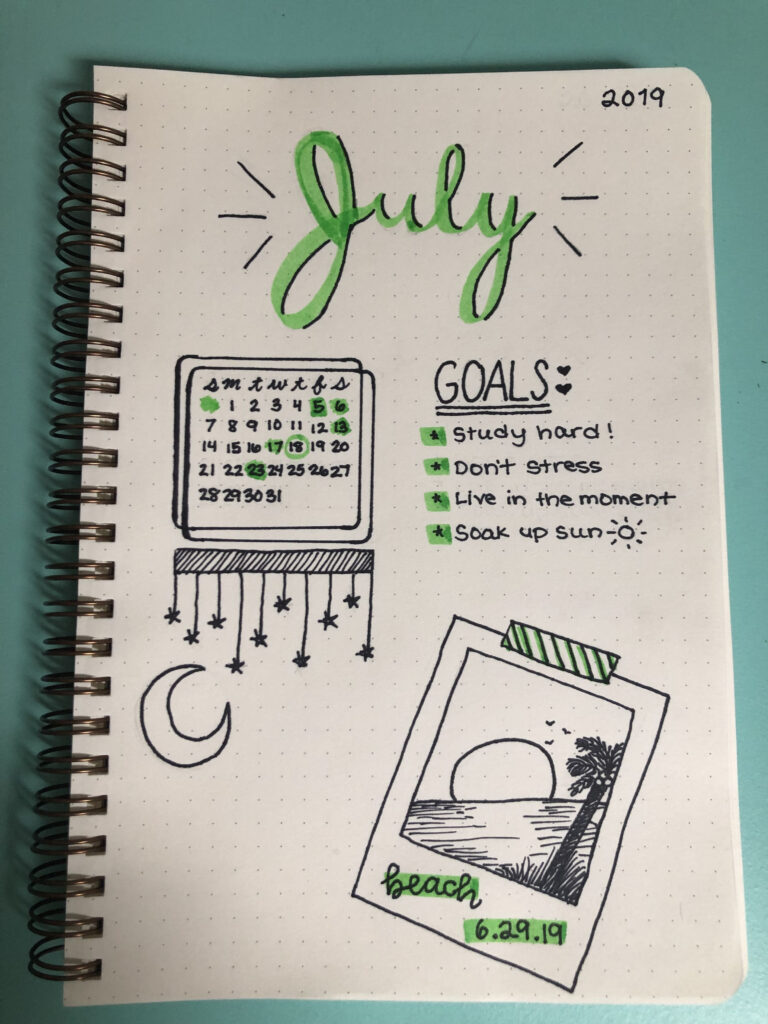 2019
July
s m t w t f s
1 2 3 4 5 6
7 8 9 10 11 12 13
14 15 16 17 18 19 20
21 22 23 24 25 26 27
28 29 30 31
GOALS:
* Study hard!
* Don't stress
* Live in the moment
* Soak up sun
beach
6.29.19